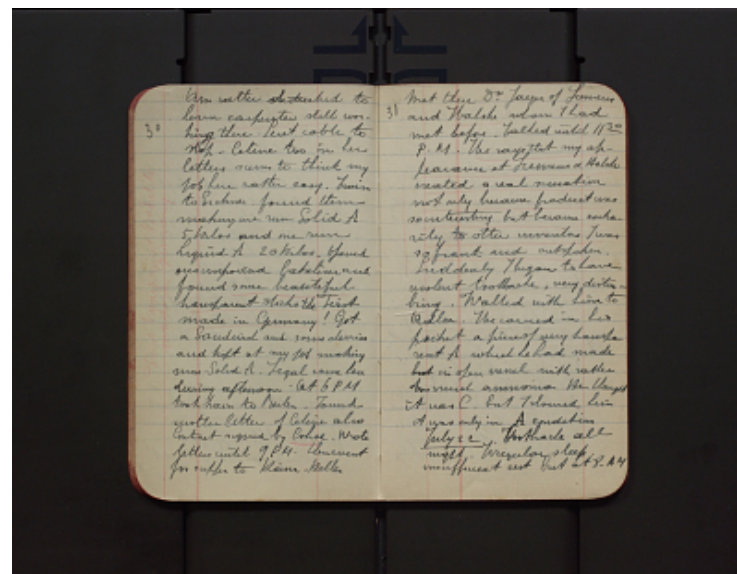 30
Am rather disturbed to
learn carpenter still wor-
king there. Sent cable to
stop - Celine too in her
letters seems to think my
job here rather easy. Train
to Erkner found them
making one run Solid A
5 kilos and one run
Liquid A 20 kilos. Opened
and found some beautiful
transparent blocks the first
made in Germany! Got
a Sandwich and some cherries
and kept at my job making
run Solid A.
during afternoon. At 6 P.M
took train to Berlin. Found
another letter of Celine also
Contract signed by. Wrote
letters until 9 P.M. Then went
for supper to
31
Met there Dr of Siemens
and Halske whom I had
met before. Talked until 11 30
P.M. He says that my ap-
pearance at Siemens & Halske
created a real sensation
not only because product was
so interesting but because contra-
rily to other inventors I was
so frank and outspoken.
Suddenly I began to have
violent toothache, very distur-
bing. Walked with him to
Adlon. He carried in his
pocket a piece of very transpa
rent A which he had made
but in open vessel with rather
too much ammonia He thought
it was C. but I showed him
it was only in A condition
July 22. Toothache all
night. Irregular sleep
insufficient rest but at 8 AM